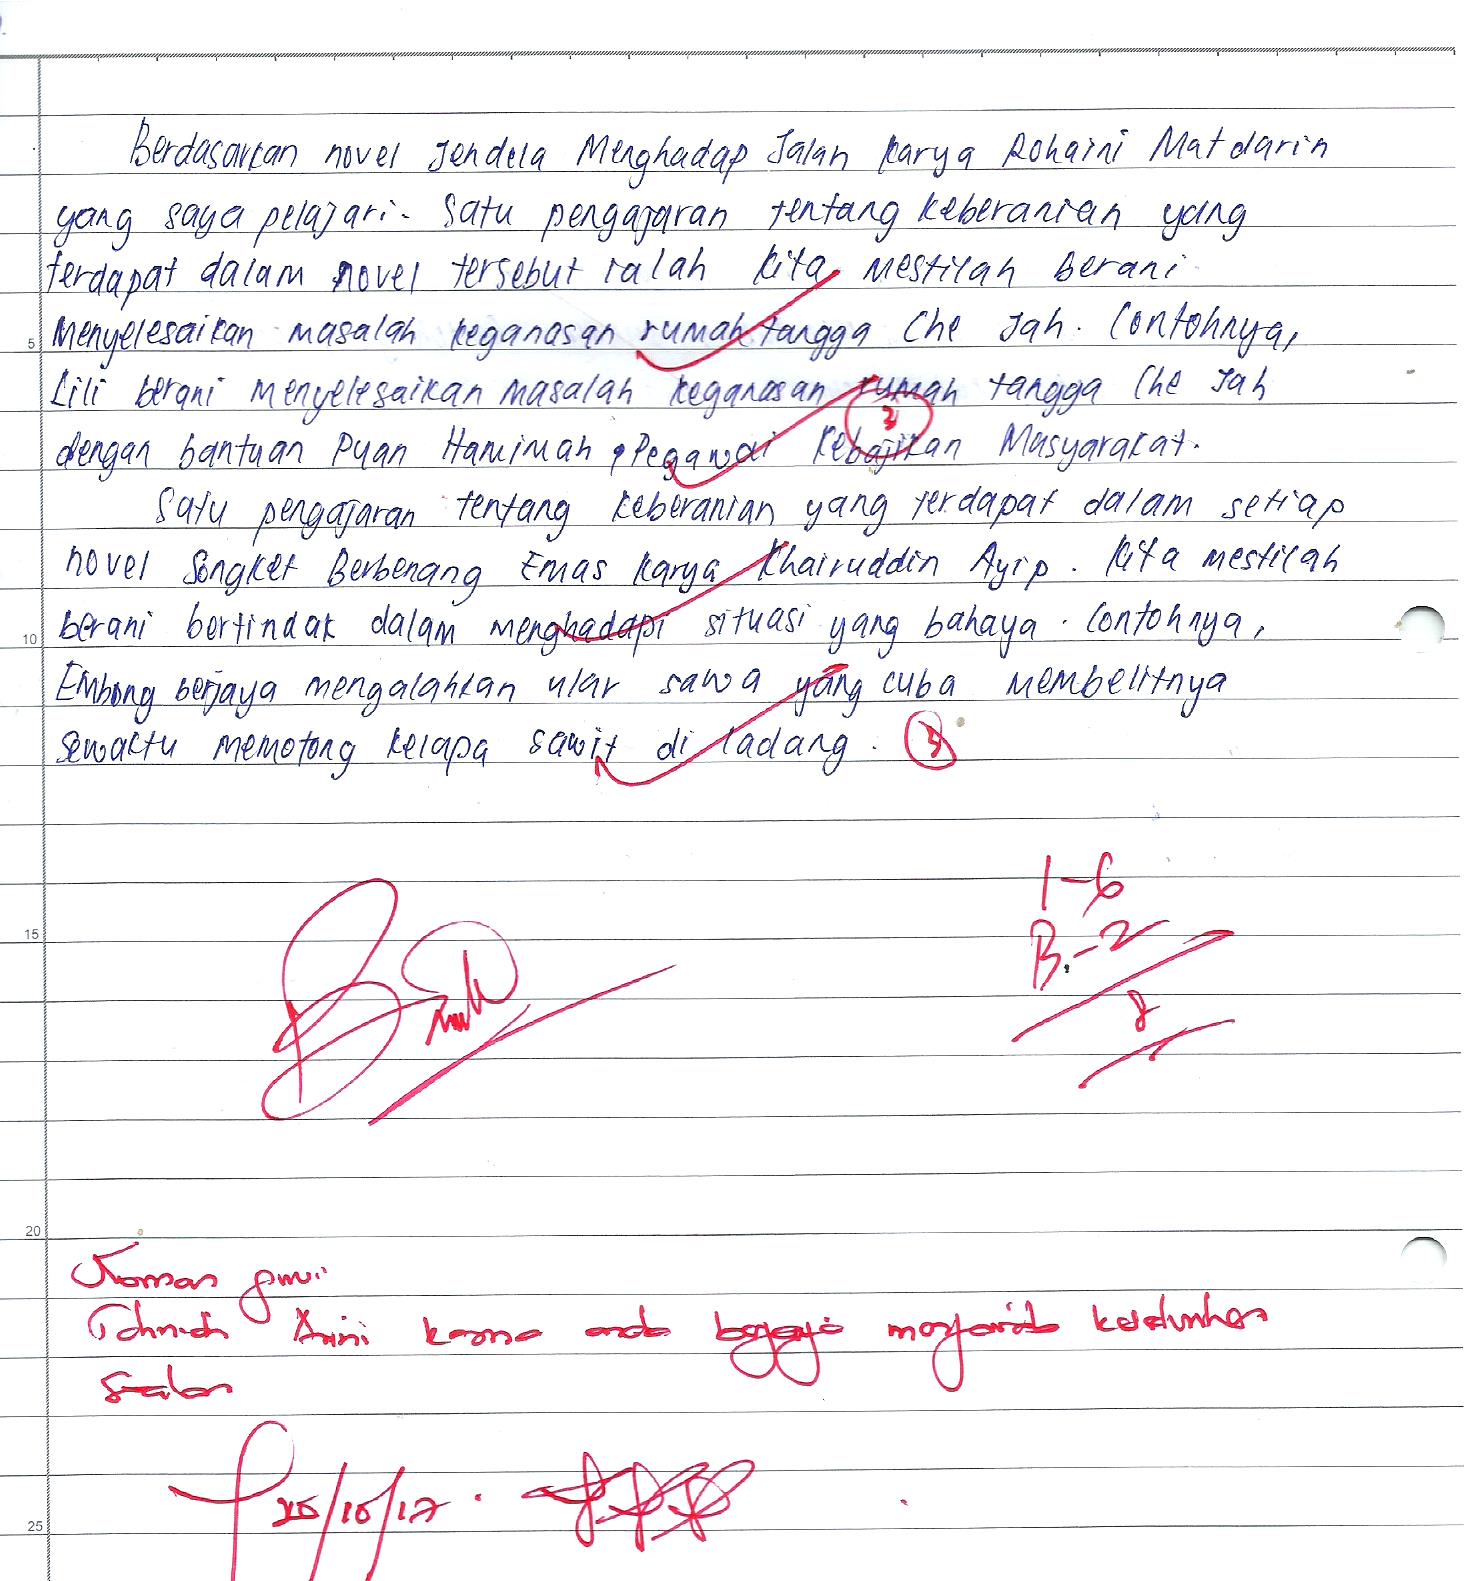 Berdasarkan novel Jendela Menghadap Jalan karya Rohaini Matdarin
yang saya pelajari. Satu pengajaran tentang keberanian yang
terdapat dalam novel tersebut ialah kita mestilah berani
Menyelesaikan masalah keganasan rumah tangga Che Jah. Contohnya,
5
Lili berani menyelesaikan masalah keganasan rumah tangga Che Jah
3
dengan bantuan Puan Hamimah, Pegawai Kebajikan Masyarakat.
Satu pengajaran tentang keberanian yang terdapat dalam setiap
novel Songket Berbenang Emas karya Khairuddin Ayip. Kita mestilah
berani bertindak dalam menghadapi situasi yang bahaya. Contohnya,
10
Embong berjaya mengalahkan ular sawa yang cuba membelitnya
sewaktu memotong kelapa sawit di ladang. 3
1-6
B.-2
15
8
20
Tahniah kerana anda
25
25/10/17.